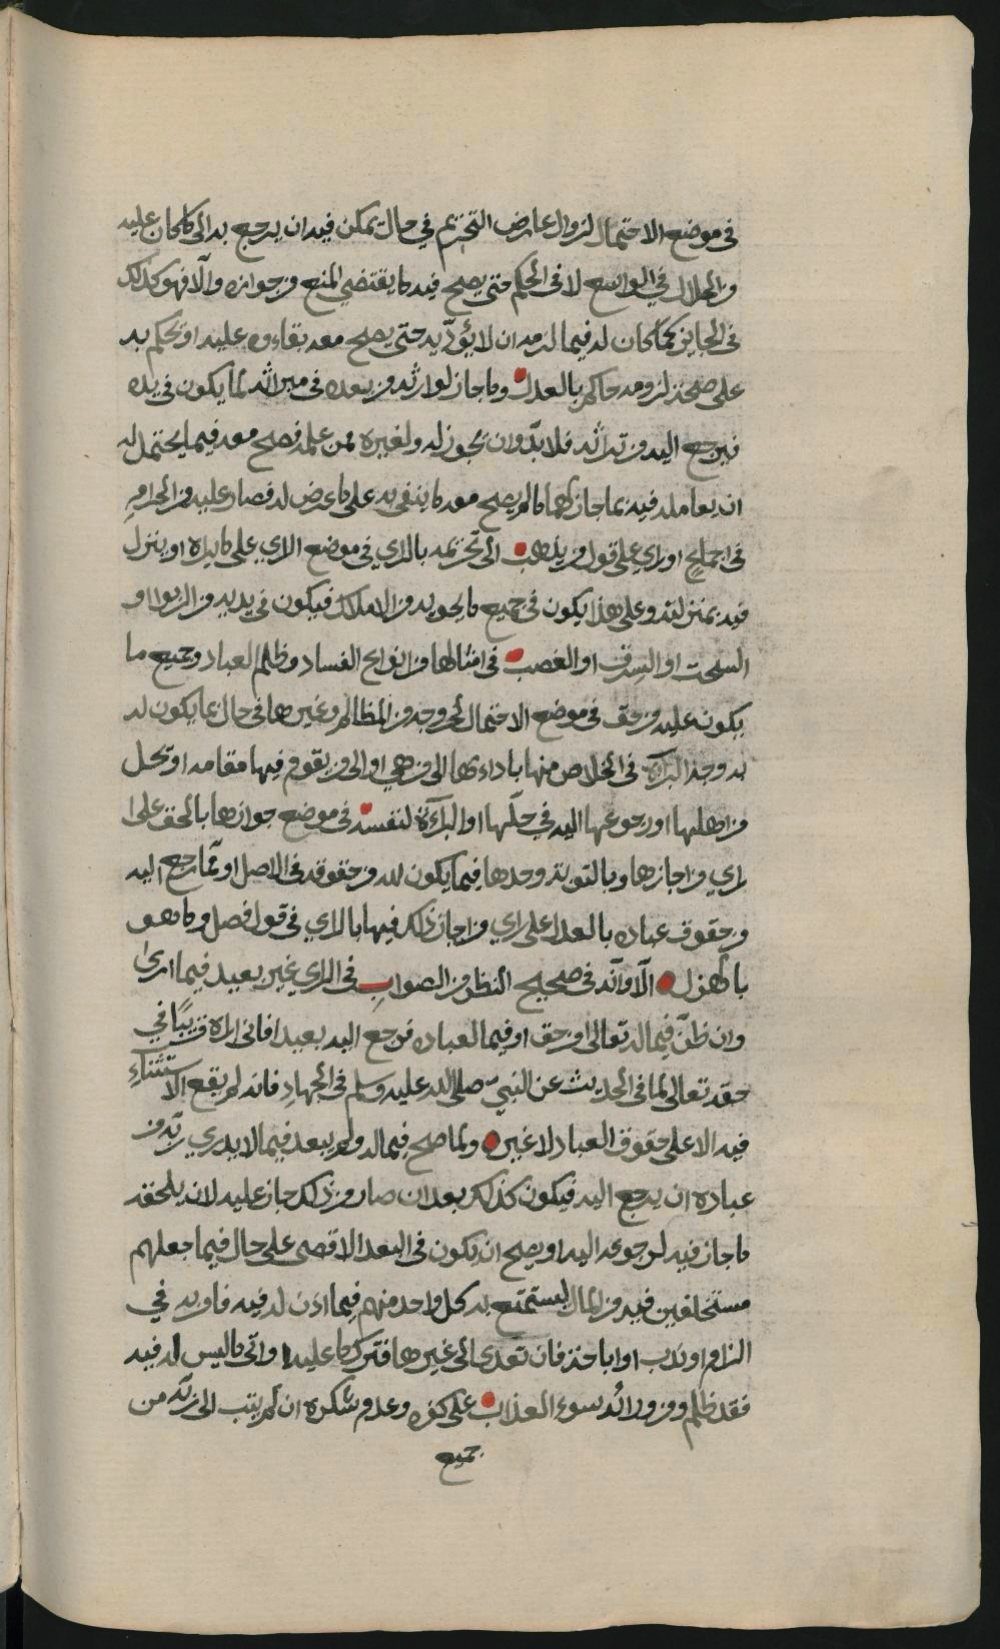 في موضع الاحتمال لزوال عارض التحريم في حال يمكن فيه ان يرجع به الى ما كان عليه
من الحلال في الواسع لا في الحكم حتى يصح فيه ما يقتضي المنع من جوازه والا فهو كذلك
في الجايز كما كان له فيما لزمه ان لا يؤديه حتى يصح معه بقاءوه عليه او يحكم به
على صحة لزومه حاكم بالعدل وما جاز لوارثه من بعده في ميراثه لما يكون في يده
فيرجع اليه من تراثه فلا بد وان يجوز له ولغيره ممن علمه فصح معه فيما يحتمل له
ان يعامله فيه بما جاز لهما ما لم يصح معه ما ينفى به على ما عرض له فصار عليه من الحرام
في اجماع او راي على قول من يذهب الى تحريمه بالراي في موضع الراي على ما يراه او ينزل
فيه بمنزلته وعلى هذا يكون في جميع ما يحويه من الاملاك فيكون في يديه من الربوا او
السحت او السرق او الغصب في امثالها من انواع الفساد وظلم العباد وجميع ما
يكون عليه من حق في موضع الاحتمال لخروجه من المظالم وغيرها في حال بما يكون له
به وجه البراة في الخلاص منها باداءها الى من هي او الى من يقوم فيها مقامه او بحل
من اهلها او رجوعها اليه في حلها او البرآءة لنفسه في موضع جوازها بالحق على
راي من اجازها وبالتوبة وحدها فيما يكون لله من حقوقه في الاصل او ما رجع اليه
من حقوق عباده بالعدل على راي من اجاز ذلك فيها بالراي في قول فصل وما هو
بالهزل الا وانه في صحيح النظر من الصواب في الراي غير بعيد فيما ارى
وان ظن فيما له تعالى من حق او فيما لعباده فرجع اليه بعيدا فاني اراه قريبًا في
حقه تعالى لما في الحديث عن النبي صلى الله عليه وسلم في الجهاد فانه لم يقع الاستثناء
فيه الا على حقوق العباد لا غيره ولما صح فيما له ولم يبعد فيما لا يدري ربه من
عباده ان يرجع اليه فيكون كذلك بعد ان صار من ذلك جاز عليه لان يلحقه
ما جاز فيه لرجوعه اليه او يصح ان يكون في البعد الاقصى على حال فيما جعلهم
مستخلفين فيه من المال ليستمتع به كل واحد منهم فيما اذن له فيه فاور به في
الزام او ندب او اباحة فان تعدى الى غيرها فترك ما عليه واتى ما ليس له فيه
فقد ظلم ومن ورائه سوء العذاب على كفره وعدم شكره ان لم يتب الى ربه من
جميع